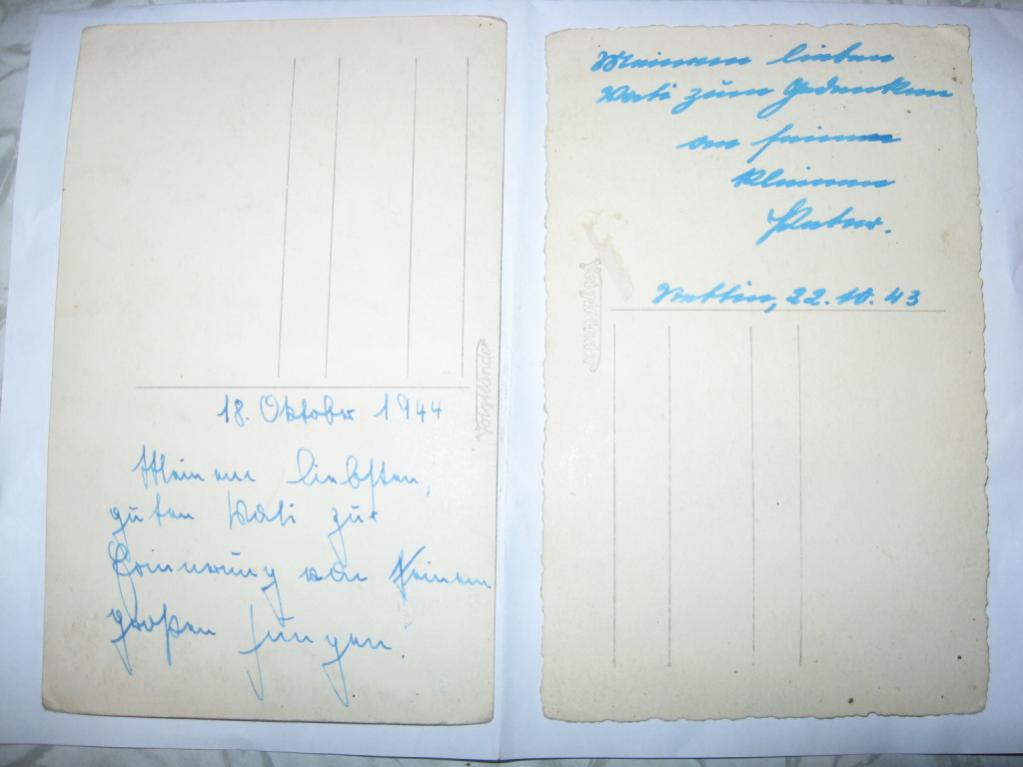 18. Oktober 1944
Meinem liebsten,
guten Vati zur
Erinnerung von seinem
großen Jungen!
Voigtländer
Meinem lieben
Vati zum Gedenken
an seinen
kleinen
Peter.
Wettin, 22.10.43
Voigtländer